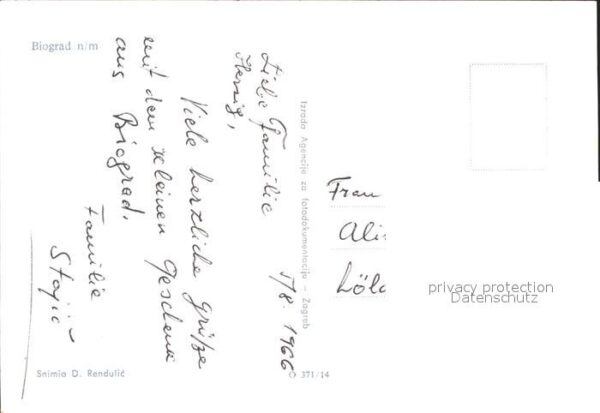 Biograd n/m
Liebe Familie
Herzig,
5/8. 1966
Viele herzliche Grüße
mit dem kleinen Geschenk
aus Biograd,
Familie
Stojić
Izrada Agencija za fotodokumentaciju — Zagreb
Snimio D. Rendulić
O 371/14
Frau
Ali
Löld
privacy protection
Datenschutz